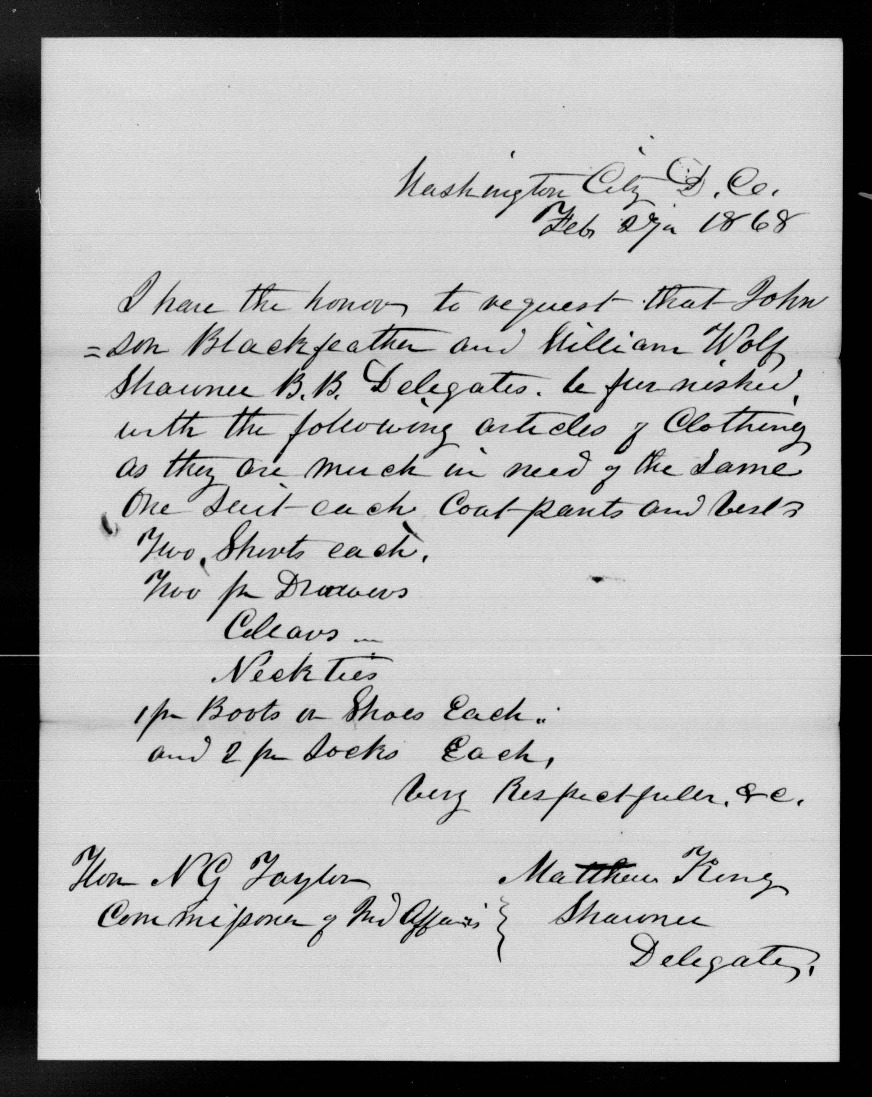 Washington City D. Co.
Feb 27th 1868
I have the honor to request that John
=son Blackfeather and William Wolf
Shawnee B.B. Delegates. be furnished
with the following articles of Clothing
as they are much in need of the Same
One Suit each Coat pants and Vests
Two Shirts each.
Two pr Drawers
Collars
Neckties
1 pr Boots or Shoes Each..
and 2 pr Socks Each,
Very Respectfuller. &c.
Hon N G Taylor
Commissioner of Ind Affairs
Matthew King
Shawnee
Delegates.